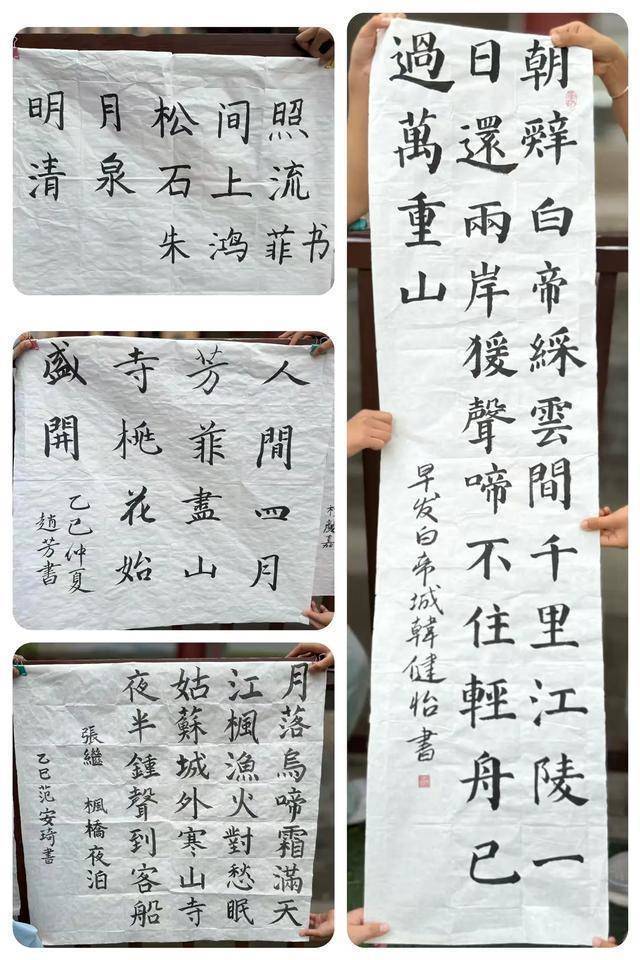 明月松间照
清泉石上流
朱鸿菲书
人間四月
芳菲盡山
寺桃花始
盛開
乙巳仲夏
趙芳書
月落烏啼霜滿天
江楓漁火對愁眠
姑蘇城外寒山寺
夜半鍾聲到客船
張繼 楓橋夜泊
乙巳范安琦書
朝辤白帝綵雲間千里江陵一
日還兩岸猨聲啼不住輕舟已
過萬重山
早发白帝城韓健怡書